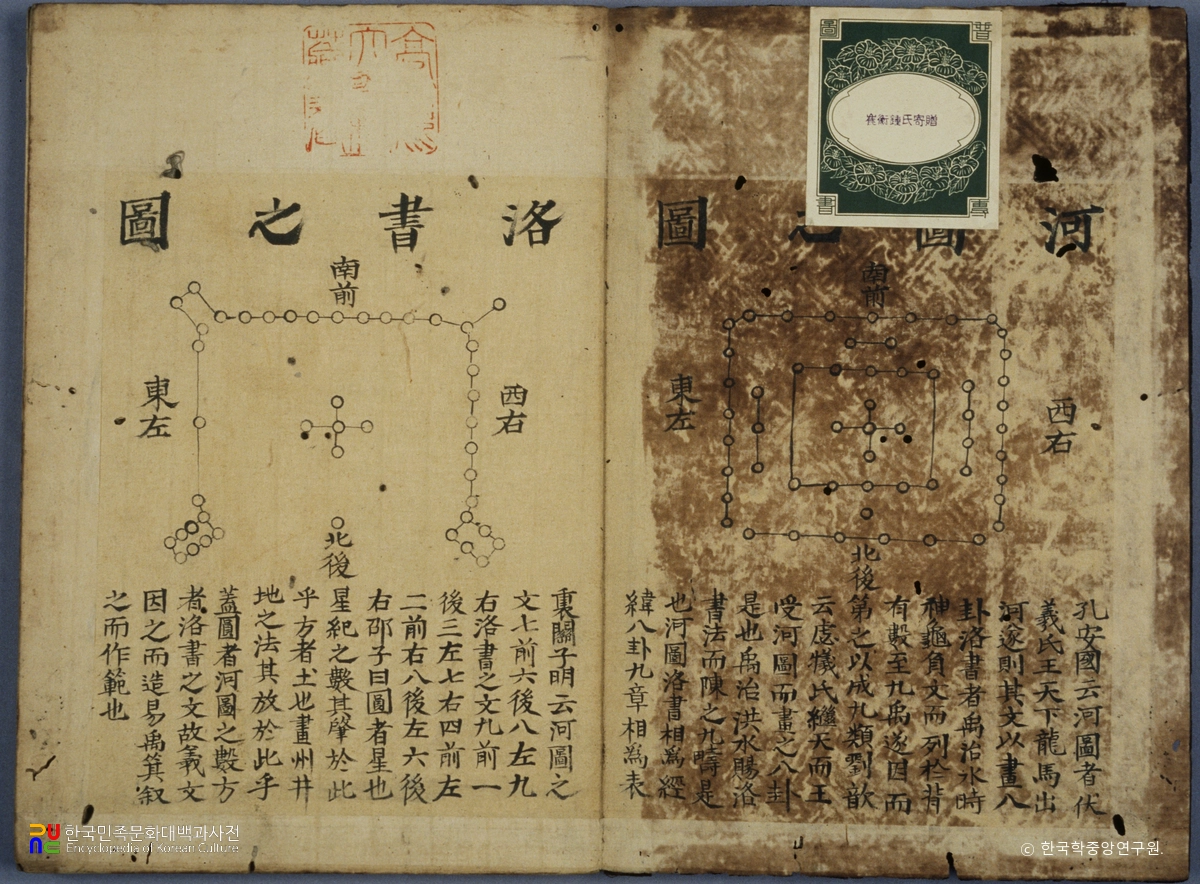 河圖之圖
南前
東左
西右
北後
孔安國云河圖者伏
羲氏王天下龍馬出
河遂則其文以畫八
卦洛書者禹治水時
神龜負文而列於背
有數至九禹遂因而
第之以成九類劉歆
云虙犧氏繼天而王
受河圖而畫之八卦
是也禹治洪水賜洛
書法而陳之九疇是
也河圖洛書相爲經
緯八卦九章相爲表
普專圖書
氏寄贈
洛書之圖
南前
東左
西右
北後
裏關子明云河圖之
文七前六後八左九
右洛書之文九前一
後三左七右四前左
二前右八後左六後
右邵子曰圓者星也
星紀之數其肇於此
乎方者土也畫州井
地之法其放於此乎
蓋圓者河圖之數方
者洛書之文故羲文
因之而造易禹箕叙
之而作範也
한국민족문화대백과사전
Encyclopedia of Korean Culture
© 한국학중앙연구원.